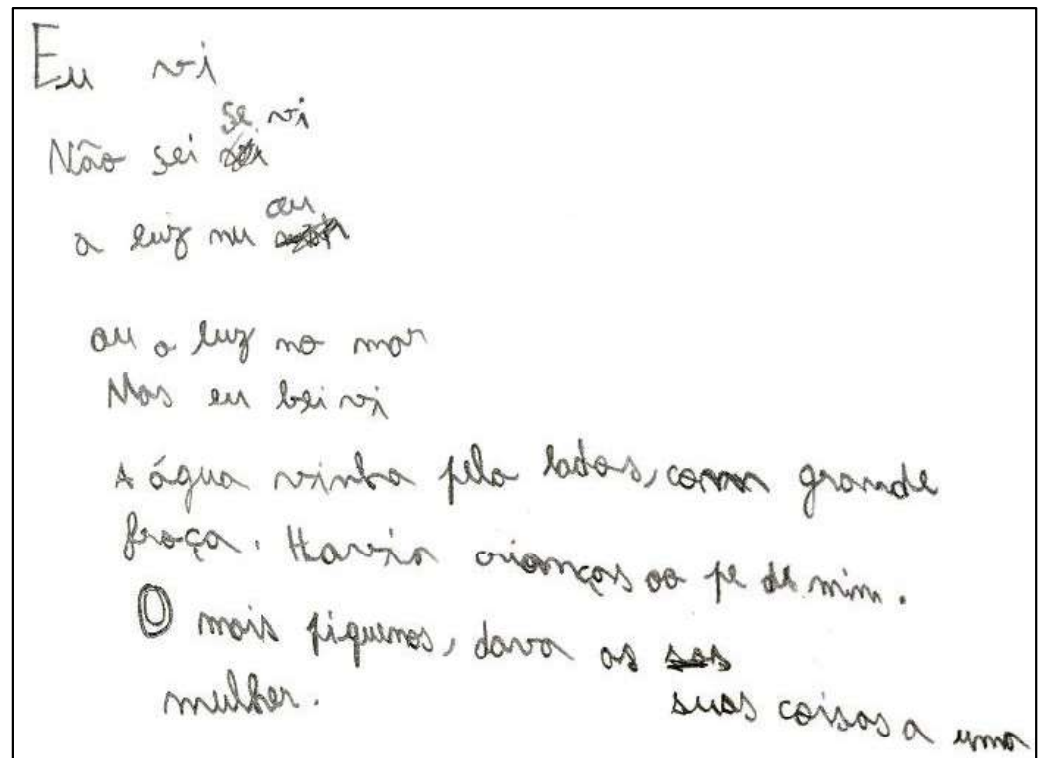 Eu vi
Não sei se vi
a luz nu au
ou a luz no mar
Mas eu bei vi
A água vinha pela lados, com grande
froça. Havia crianças ao pe de mim.
O mais piquenos, dava as
suas coisas a uma
mulher.